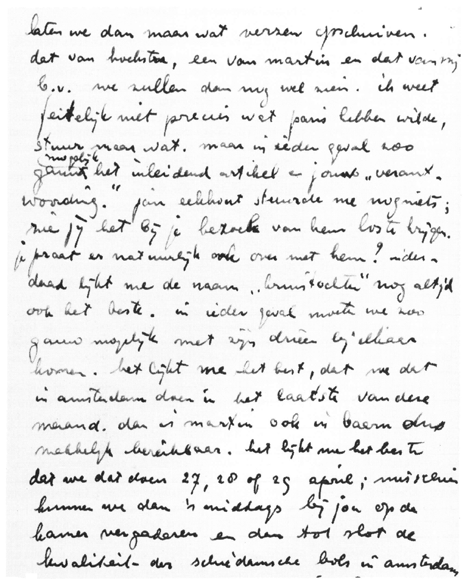 laten we dan maar wat verzen opschuiven.
dat van hoekstra, een van martin en dat van mij
b.v. we zullen dan nog wel zien. ik weet
feitelijk niet precies wat paris hebben wilde,
stuur maar wat. maar in ieder geval zoo
mogelijk
gauw het inleidend artikel en jouw „verant-
woording." jan eekhout stuurde me nog niets;
zie jij het bij je bezoek van hem los te krijgen.
je praat er natuurlijk ook over met hem? inder-
daad lijkt me de naam „kruistochten" nog altijd
ook het beste. in ieder geval moeten we zoo
gauw mogelijk met zijn drieën bij elkaar
komen. het lijkt me het best, dat we dat
in amsterdam doen in het laatste van deze
maand. dan is martin ook in baarn dus
makkelijk bereikbaar. het lijkt me het beste
dat we dat doen 27, 28 of 29 april; misschien
kunnen we dan 's middags bij jou op de
kamer vergaderen en dan tot slot de
kwaliteit der schiedamsche bols in amsterdam